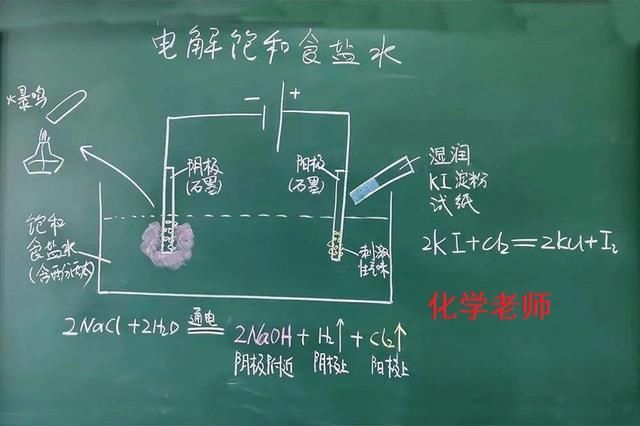 电解饱和食盐水
爆鸣
- +
阴极
(石墨)
阳极
(石墨)
湿润
KI淀粉
试纸
饱和
食盐水
(含酚酞)
刺激
性气味
2KI+Cl₂=2KCl+I₂
化学老师
2NaCl+2H₂O 通电 2NaOH+H₂↑+Cl₂↑
阴极附近 阴极上 阳极上